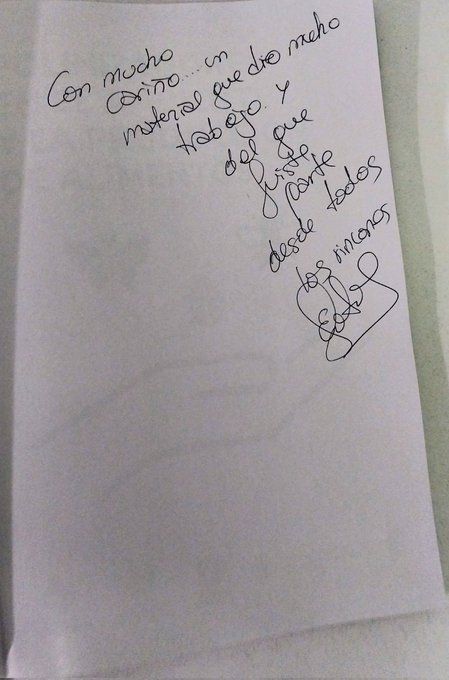 Con mucho
cariño.... un
material que dio mucho
trabajo y
del que
fuiste
parte
desde todos
los rincones